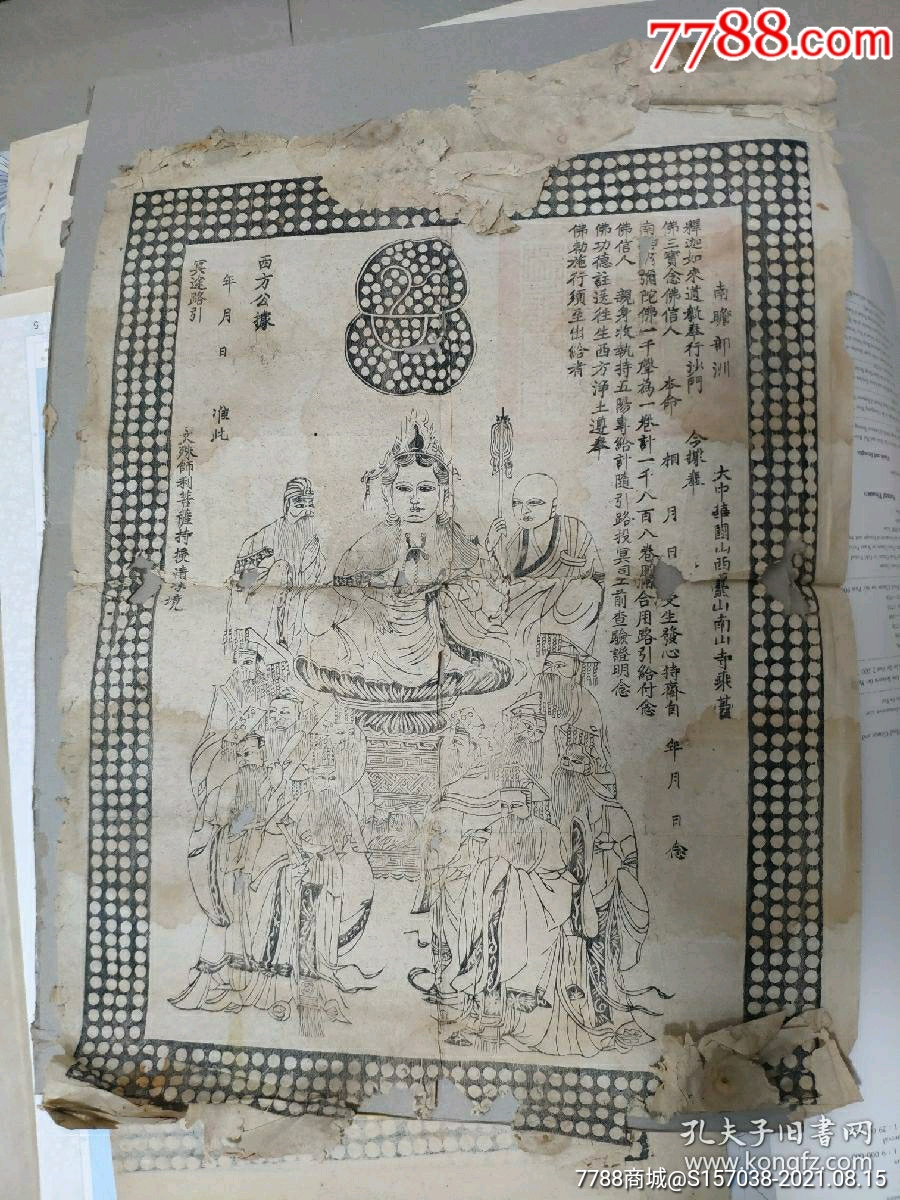 7788.com
南瞻部洲
大中華國山西臺山南山寺乘
釋迦如來遺教奉行沙門 今據
佛三寶念佛信人 本命 相 月 日 受生發心持齋自 年 月 日 念
南無阿彌陀佛一千聲為一卷計一千八百八卷 合用路引給付念
佛信人 親身收執持五陽專給計隨引路投冥司 前查驗證明念
佛功德註送往生西方淨土遵奉
佛勅施行須至出給者
西方公據
年 月 日
冥途路引
准此
文殊師利菩薩持
孔夫子旧书网
www.kongfz.com
7788商城@S157038-2021.08.15